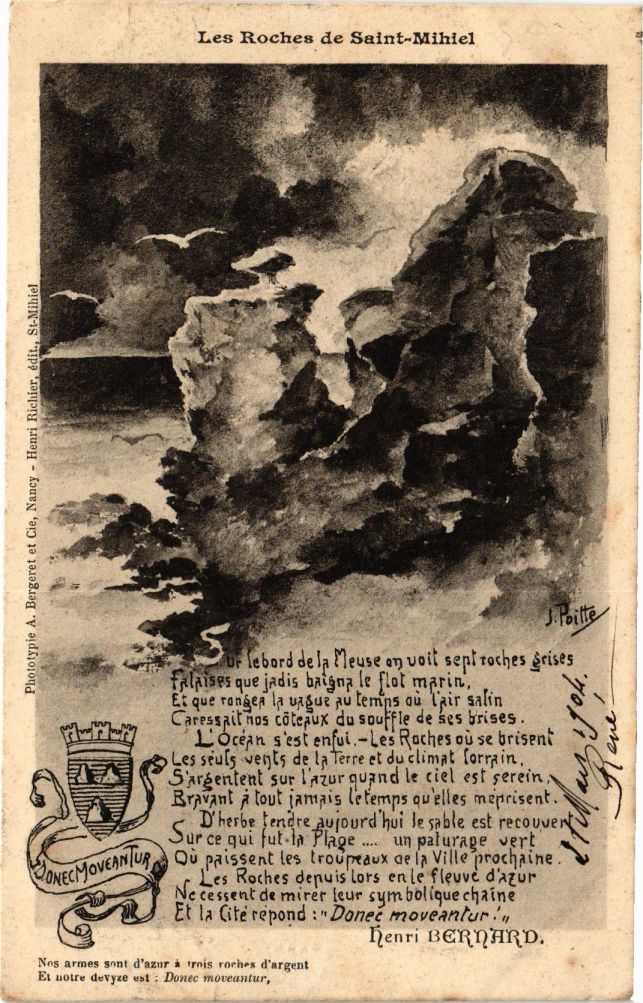 Les Roches de Saint-Mihiel
Phototypie A. Bergeret et Cie, Nancy - Henri Richier, édit., St-Mihiel
J. Poitte
Sur le bord de la Meuse on voit sept roches grises
Falaises que jadis baigna le flot marin,
Et que rongea la vague au temps où l'air salin
Caressait nos côteaux du souffle de ses brises.
L'Océan s'est enfui. - Les Roches où se brisent
Les seuls vents de la Terre et du climat lorrain,
S'argentent sur l'azur quand le ciel est serein,
Bravant à tout jamais le temps qu'elles méprisent.
D'herbe tendre aujourd'hui le sable est recouvert
Sur ce qui fut la Plage .... un paturage vert
Où paissent les troupeaux de la Ville prochaine.
Les Roches depuis lors en le fleuve d'azur
Ne cessent de mirer leur symbolique chaîne
Et la Cité répond : "Donec moveantur!"
Henri BERNARD.
Mars 1904.
René
DONEC MOVEANTUR
Nos armes sont d'azur à trois roches d'argent
Et notre devyze est : Donec moveantur,